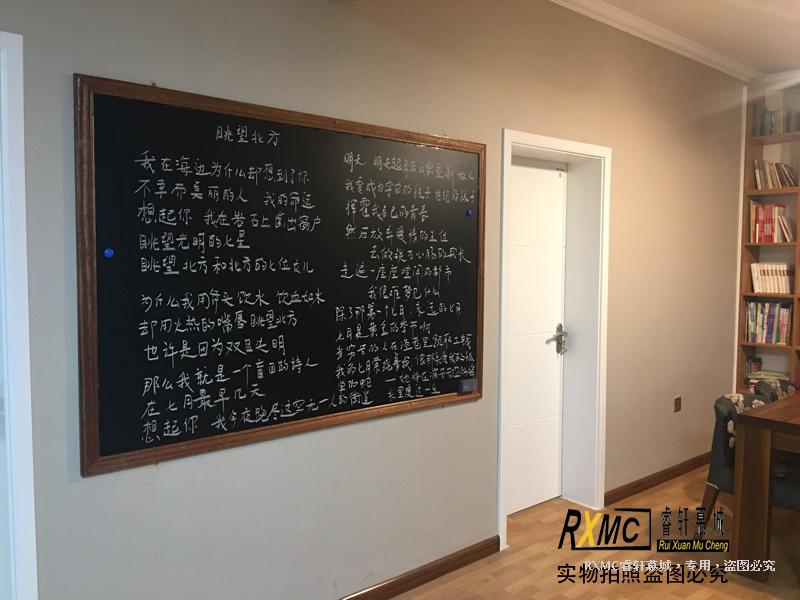 眺望北方
我在海边为什么却想到了你
不幸而美丽的人 我的命运
想起你 我在岩石上凿出窗户
眺望光明的七星
眺望北方和北方的七位女儿
为什么我用斧头饮水 饮血如水
却用火热的嘴唇眺望北方
也许是因为双目失明
那么我就是一个盲目的诗人
在七月最早几天
想起你 我今夜跑尽这空无一人的街道
明天，明天起来后我要重新做人
我要成为宇宙的孩子 世纪的孩子
挥霍我自己的青春
然后放弃爱情的王位
去做铁石心肠的船长
走遍一座座喧闹的都市
我很难梦见什么
除了那第一个七月，永远的七月
七月是黄金的季节啊
RXMC 睿轩慕城
Rui Xuan Mu Cheng
RXMC睿轩慕城，专用，盗图必究
实物拍照盗图必究